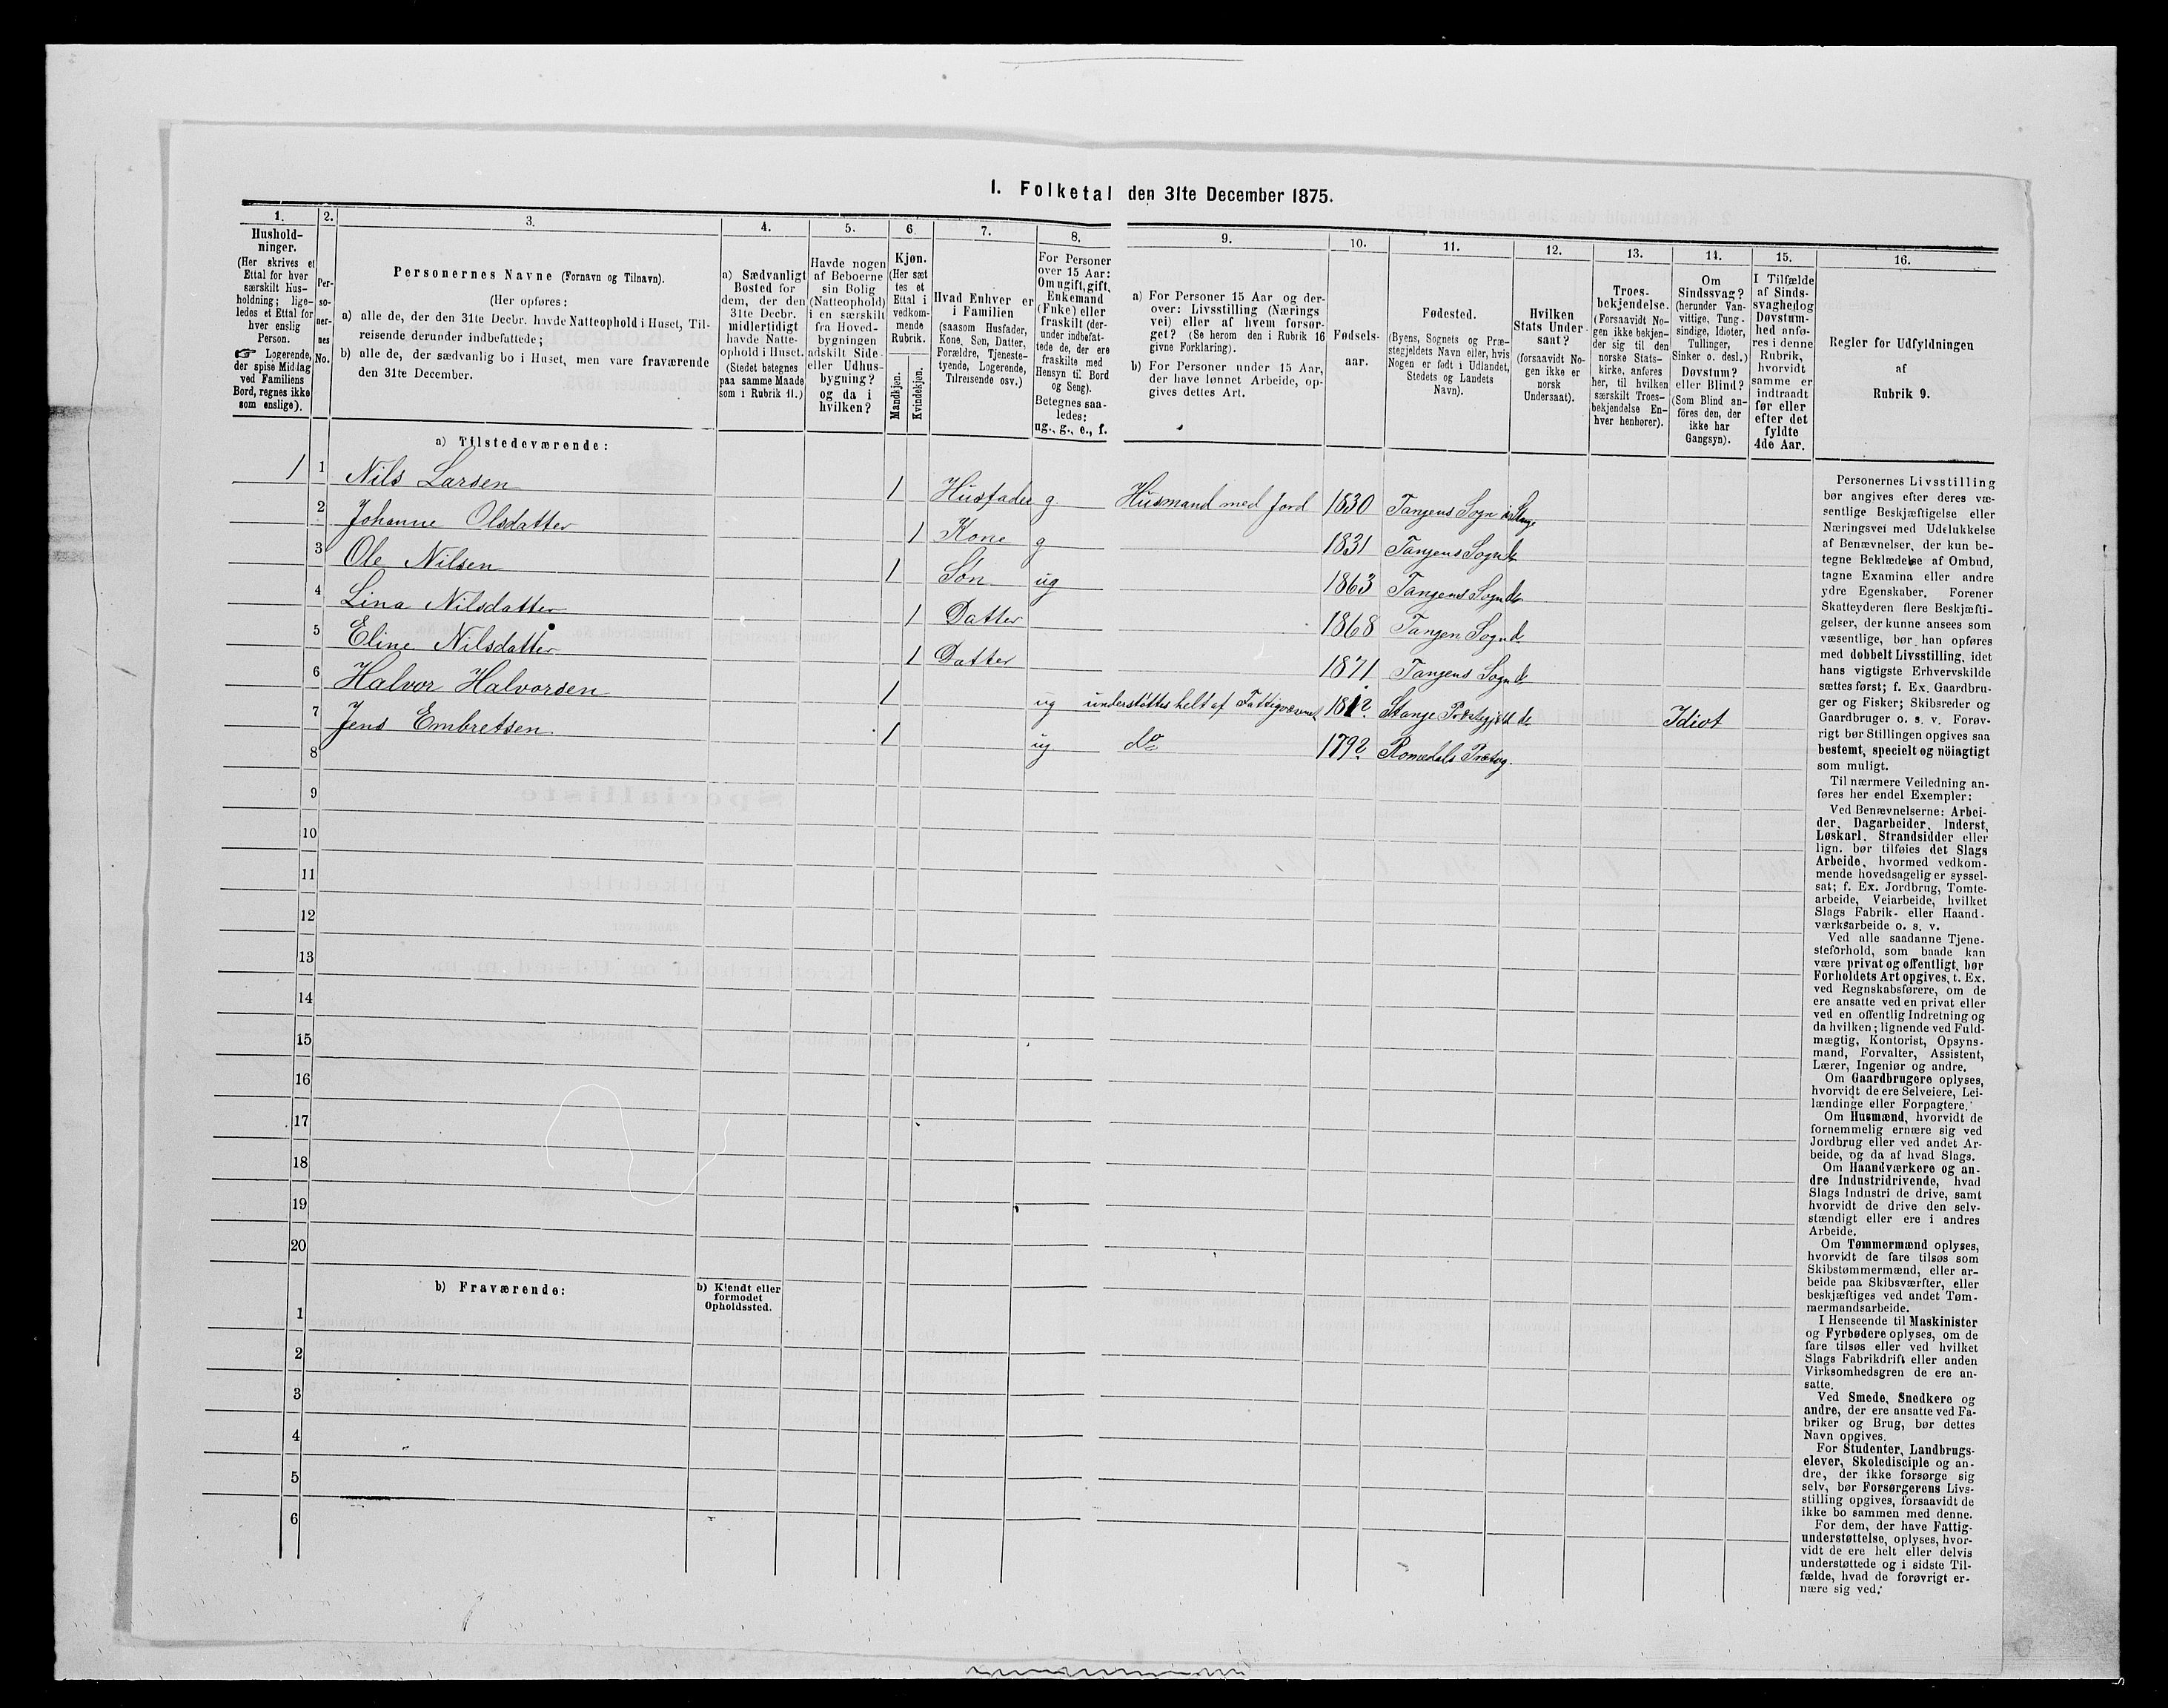 I. Folketal den 31te December 1875.
1.
Hushold-
ninger.
(Her skrives et
Ettal for hver
særskilt Hus-
holdning; lige-
ledes et Ettal for
hver enslig
Person.
☞ Logerende,
der spise Middag
ved Familiens
Bord, regnes ikke
som enslige).
2.
Per-
so-
ner-
nes
No.
3.
Personernes Navne (Fornavn og Tilnavn).
(Her opføres:
a) alle de, der den 31te Decbr. havde Natteophold i Huset, Til-
reisende derunder indbefattede;
b) alle de, der sædvanlig bo i Huset, men vare fraværende
den 31te December.
4.
a) Sædvanligt
Bosted for
dem, der den
31te Decbr.
midlertidigt
havde Natte-
ophold i Huset.
(Stedet betegnes
paa samme Maade
som i Rubrik 11.)
5.
Havde nogen
af Beboerne
sin Bolig
(Natteophold)
i en særskilt
fra Hoved-
bygningen
adskilt Side-
eller Udhus-
bygning?
og da i
hvilken?
6.
Kjøn.
(Her sæt
tes et
Ettal i
vedkom-
mende
Rubrik.
Mandkjøn.
Kvindekjøn.
7.
Hvad Enhver er
i Familien
(saasom Husfader,
Kone, Søn, Datter,
Forældre, Tjeneste-
tyende, Logerende,
Tilreisende osv.)
8.
For Personer
over 15 Aar:
Om ugift, gift,
Enkemand
(Enke) eller
fraskilt (der-
under indbefat-
tede de, der ere
fraskilte med
Hensyn til Bord
og Seng).
Betegnes saa-
ledes:
ug., g., e., f.
9.
a) For Personer 15 Aar og der-
over: Livsstilling (Nærings
vei) eller af hvem forsør-
get? (Se herom den i Rubrik 16
givne Forklaring).
b) For Personer under 15 Aar,
der have lønnet Arbeide, op-
gives dettes Art.
10.
Fødsels-
aar.
11.
Fødested.
(Byens, Sognets og Præ-
stegjeldets Navn eller, hvis
Nogen er født i Udlandet,
Stedets og Landets
Navn).
12.
Hvilken
Stats Under-
saat?
(forsaavidt No-
gen ikke er
norsk
Undersaat).
13.
Troes-
bekjendelse.
(Forsaavidt No-
gen ikke bekjen-
der sig til den
norske Stats-
kirke, anføres
her, til hvilken
særskilt Troes-
bekjendelse En-
hver henhører).
14.
Om
Sindssvag?
(herunder Van-
vittige, Tung-
sindige, Idioter,
Tullinger,
Sinker o. desl.)
Døvstum?
eller Blind?
(Som Blind an-
føres den, der
ikke har
Gangsyn).
15.
I Tilfælde
af Sinds-
svaghed og
Døvstum-
hed anfø-
res i denne
Rubrik,
hvorvidt
samme er
indtraadt
før eller
efter det
fyldte
4de Aar.
16.
Regler for Udfyldningen
af
Rubrik 9.
a) Tilstedeværende:
1 1 Nils Larsen 1 Husfader g. Husmand med Jord 1830 Tangens Sogn i Stange
2 Johanne Olsdatter 1 Kone g 1831 Tangens Sogn do
3 Ole Nilsen 1 Søn ug 1863 Tangens Sogn do
4 Lina Nilsdatter 1 Datter 1868 Tangen Sogn do
5 Eline Nilsdatter 1 Datter 1871 Tangens Sogn do
6 Halvor Halvorsen 1 ug understøttes helt af Fattigvæsenet 1812 Stange Præstegjeld do Idiot
7 Jens Embretsen 1 ug do 1792 Romedals Præsteg.
8
9
10
11
12
13
14
15
16
17
18
19
20
b) Fraværende:
b) Kjendt eller
formodet
Opholdssted.
1
2
3
4
5
6
Personernes Livsstilling
bør angives efter deres væ-
sentlige Beskjæftigelse eller
Næringsvei med Udelukkelse
af Benævnelser, der kun be-
tegne Beklædelse af Ombud,
tagne Examina eller andre
ydre Egenskaber. Forener
Skatteyderen flere Beskjæfti-
gelser, der kunne ansees som
væsentlige, bør han opføres
med dobbelt Livsstilling, idet
hans vigtigste Erhvervskilde
sættes først; f. Ex. Gaardbru-
ger og Fisker; Skibsreder og
Gaardbruger o. s. v. Forøv-
rigt bør Stillingen opgives saa
bestemt, specielt og nöiagtigt
som muligt.
Til nærmere Veiledning an-
føres her endel Exempler:
Ved Benævnelserne: Arbei-
der, Dagarbeider, Inderst,
Løskarl, Strandsidder eller
lign. bør tilføies det Slags
Arbeide, hvormed vedkom-
mende hovedsagelig er syssel-
sat; f. Ex. Jordbrug, Tomte-
arbeide, Veiarbeide, hvilket
Slags Fabrik- eller Haand-
værksarbeide o. s. v.
Ved alle saadanne Tjene-
steforhold, som baade kan
være privat og offentligt, bør
Forholdets Art opgives, t. Ex.
ved Regnskabsførere, om de
ere ansatte ved en privat eller
ved en offentlig Indretning og
da hvilken; lignende ved Fuld-
mægtig, Kontorist, Opsyns-
mand, Forvalter, Assistent,
Lærer, Ingeniør og andre.
Om Gaardbrugere oplyses,
hvorvidt de ere Selveiere, Lei-
lændinge eller Forpagtere.
Om Husmænd, hvorvidt de
fornemmelig ernære sig ved
Jordbrug eller ved andet Ar-
beide, og da af hvad Slags.
Om Haandværkere og an-
dre Industridrivende, hvad
Slags Industri de drive, samt
hvorvidt de drive den selv-
stændigt eller ere i andres
Arbeide.
Om Tømmermænd oplyses,
hvorvidt de fare tilsøs som
Skibstømmermænd, eller ar-
beide paa Skibsværfter, eller
beskjæftiges ved andet Tøm-
mermandsarbeide.
I Henseende til Maskinister
og Fyrbødere oplyses, om de
fare tilsøs eller ved hvilket
Slags Fabrikdrift eller anden
Virksomhedsgren de ere an-
satte.
Ved Smede, Snedkere og
andre, der ere ansatte ved Fa-
briker og Brug, bør dettes
Navn opgives.
For Studenter, Landbrugs-
elever, Skoledisciple og an-
dre, der ikke forsørge sig
selv, bør Forsørgerens Livs-
stilling opgives, forsaavidt de
ikke bo sammen med denne.
For dem, der have Fattig-
understøttelse, oplyses, hvor-
vidt de ere helt eller delvis
understøttede og i sidste Til-
fælde, hvad de forøvrigt er-
nære sig ved.